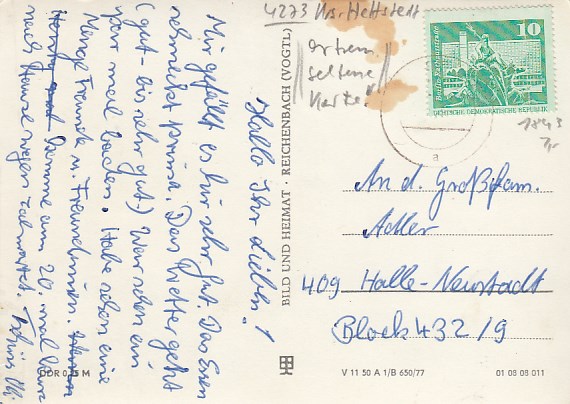 Hallo Ihr Lieben!
Mir gefällt es hir sehr gut. Das Essen
schmeckt prima. Das Wetter geht
(gut - bis sehr gut.) War schon ein
paar mal baden. Habe schon eine
Menge Freunde u. Freundinnen.
Komme am 20. mal kurz
nach Hause wegen Zahnarzt.
4273 Krs. Hettstedt
extrem
seltene
Karte!
10
DEUTSCHE DEMOKRATISCHE REPUBLIK
1843
BILD UND HEIMAT · REICHENBACH (VOGTL)
An d. Großfam.
Adler
409 Halle-Neustadt
Block 432/9
DDR 0,25 M
V 11 50 A 1/B 650/77
01 08 08 011